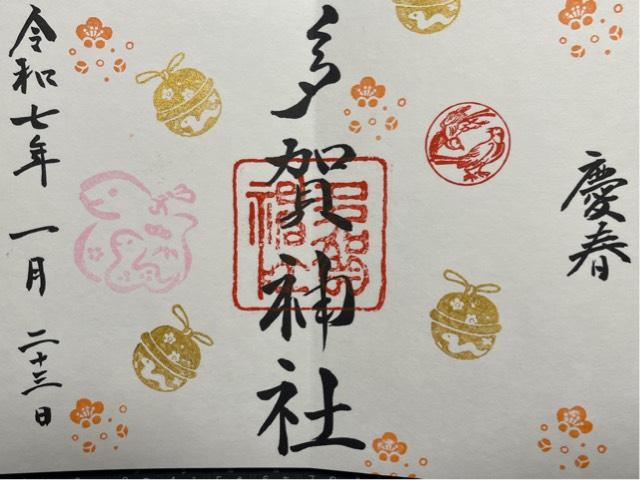 慶春
多賀神社
令和七年 一月 二十三日